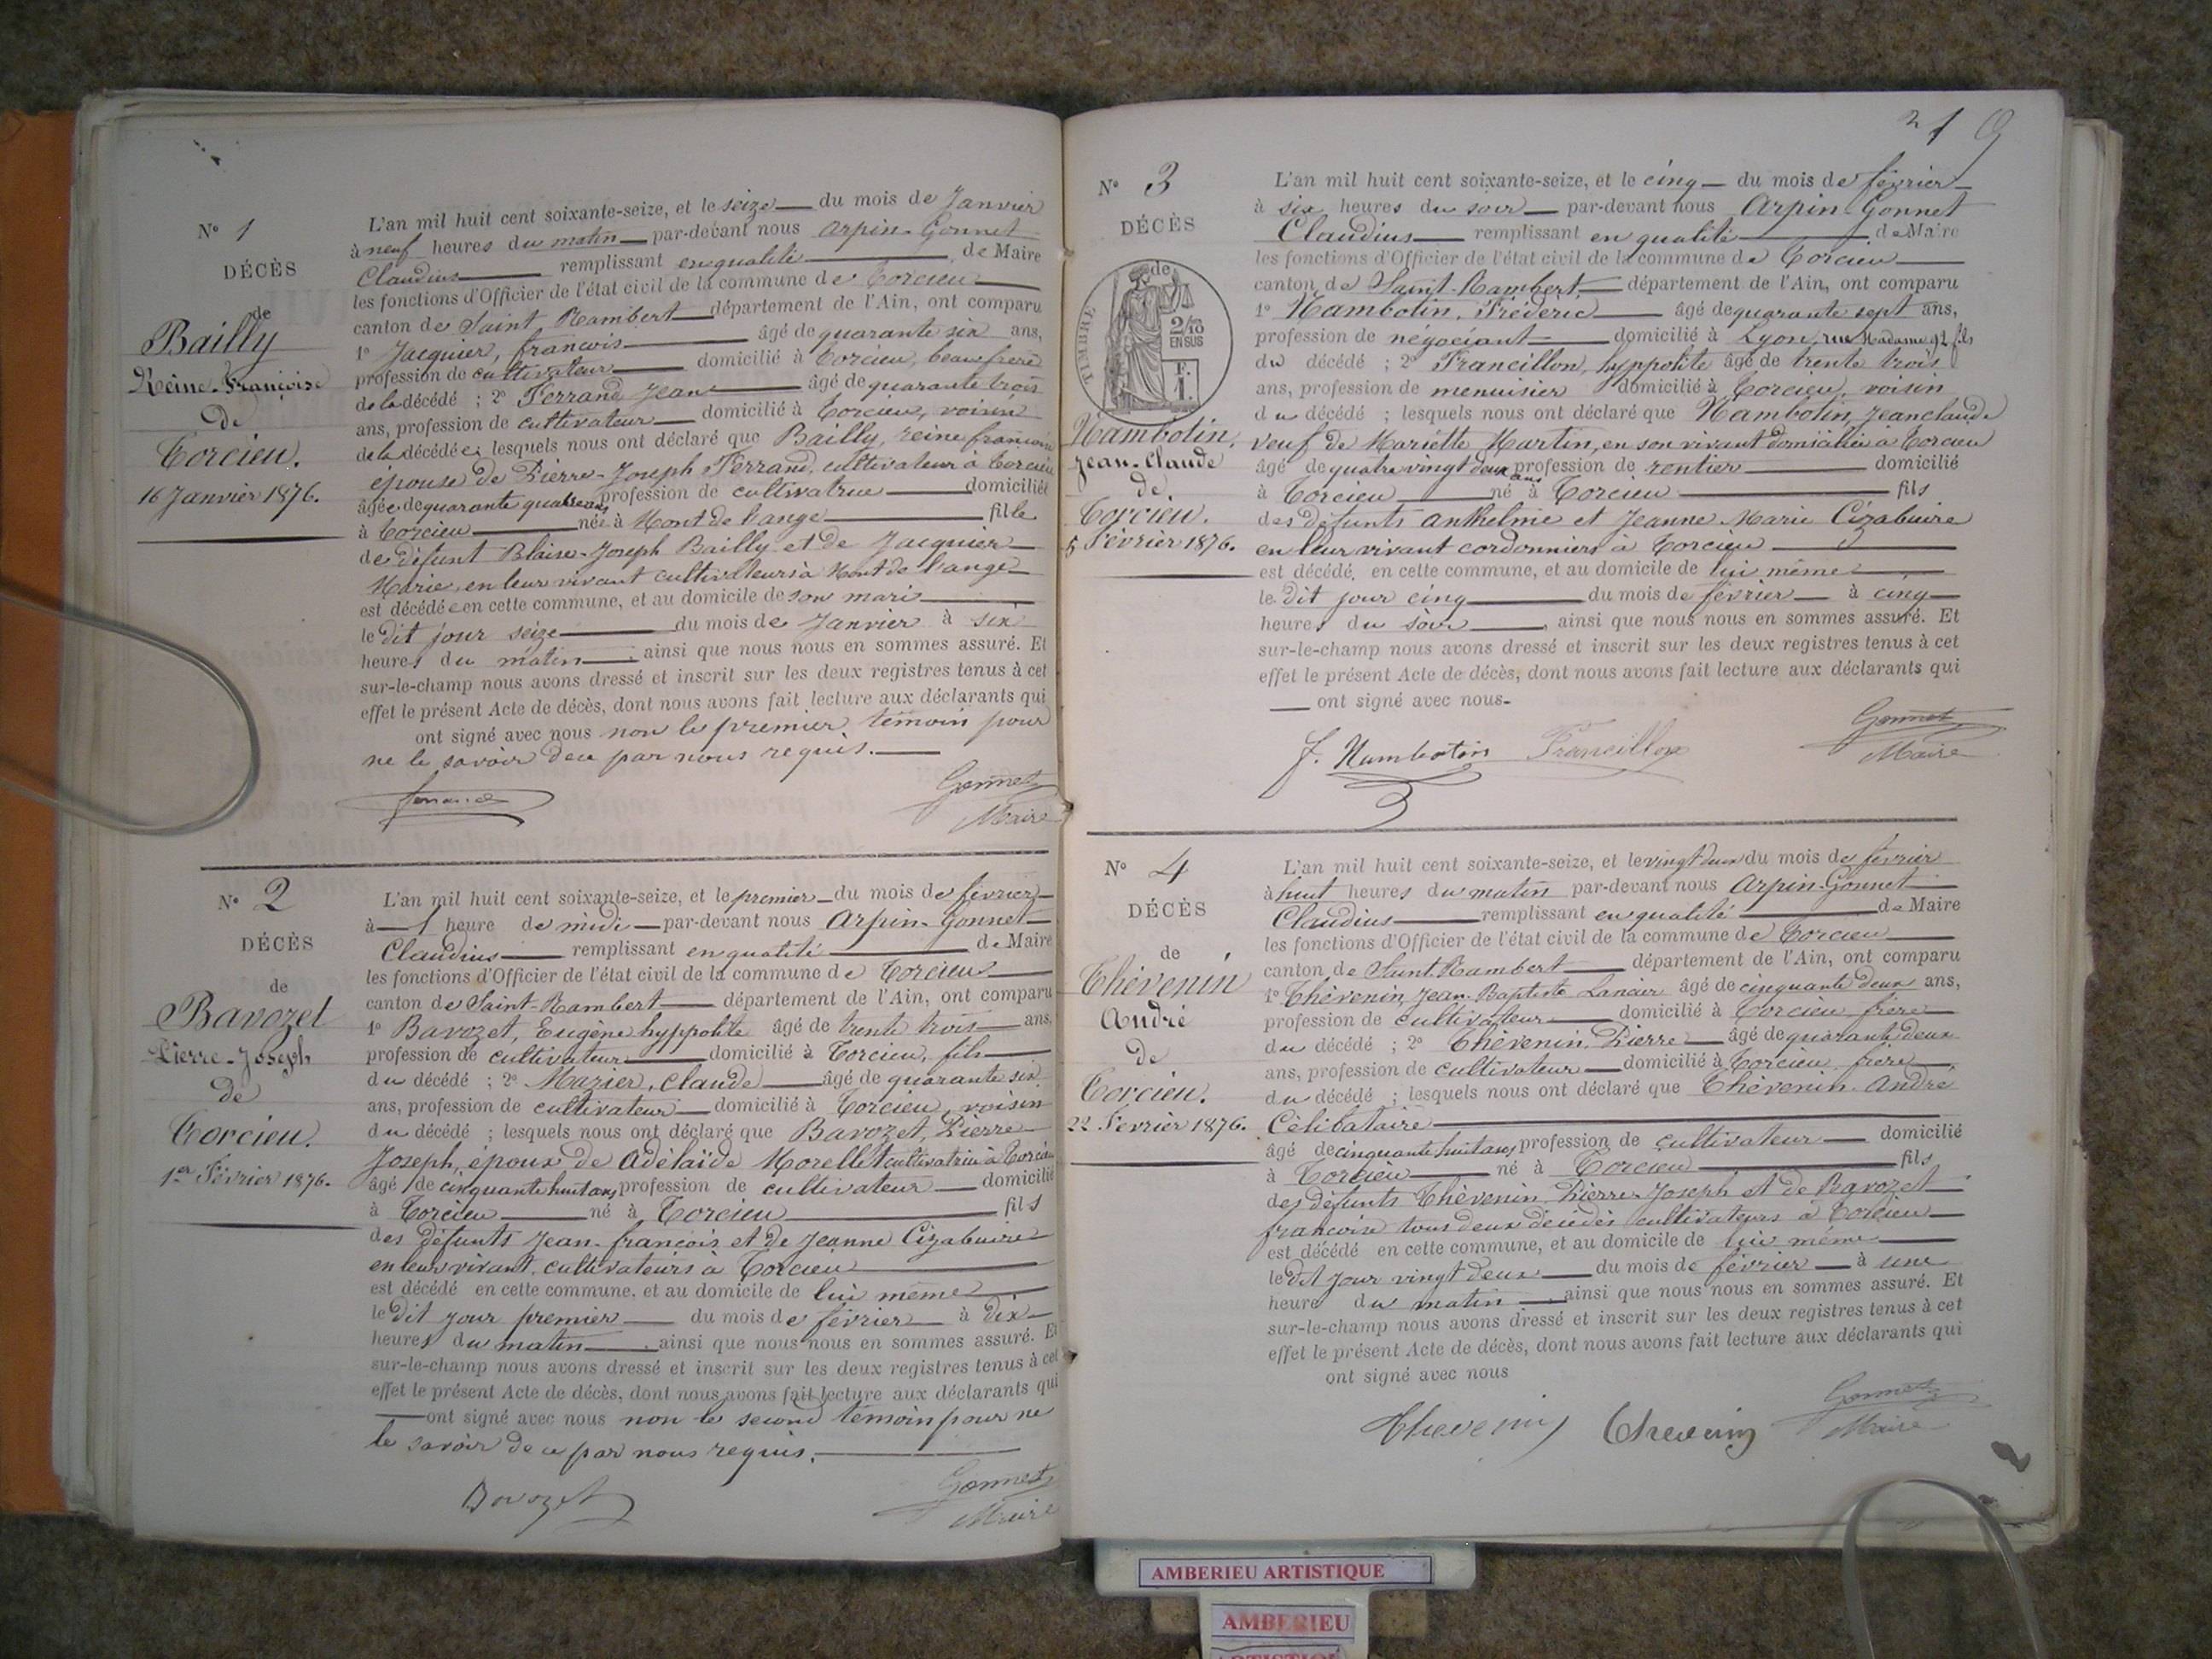 N° 1
DÉCÈS
de
Bailly
Reine-Françoise
de
Torcieu.
16 Janvier 1876.
L'an mil huit cent soixante-seize, et le seize du mois de Janvier
à neuf heures du matin par-devant nous Arpin-Gonnet
Claudius remplissant en qualité de Maire
les fonctions d'Officier de l'état civil de la commune de Torcieu
canton de Saint Rambert département de l'Ain, ont comparu
1° Jacquier, françois âgé de quarante six ans,
profession de cultivateur domicilié à Torcieu, beau frère
de la décédé ; 2° Ferrand Jean âgé de quarante trois
ans, profession de cultivateur domicilié à Torcieu, voisin
de la décédée ; lesquels nous ont déclaré que Bailly, reine françoise
épouse de Pierre-Joseph Ferrand, cultivateur à Torcieu
âgée de quarante quatre ans profession de cultivatrice domiciliée
à Torcieu née à Mont de l'ange fille
de défunt Blaise-Joseph Bailly et de Jacquier
Marie, en leur vivant cultivateurs à Mont de l'ange
est décédée en cette commune, et au domicile de son mari
le dit jour seize du mois de Janvier à six
heures du matin ; ainsi que nous nous en sommes assuré. Et
sur-le-champ nous avons dressé et inscrit sur les deux registres tenus à cet
effet le présent Acte de décès, dont nous avons fait lecture aux déclarants qui
ont signé avec nous non le premier témoin pour
ne le savoir de ce par nous requis.
Ferrand
Gonnet
Maire
N° 2
DÉCÈS
de
Bavozet
Pierre-Joseph
de
Torcieu.
1er Février 1876.
L'an mil huit cent soixante-seize, et le premier du mois de février
à 1 heure de midi par-devant nous Arpin-Gonnet
Claudius remplissant en qualité de Maire
les fonctions d'Officier de l'état civil de la commune de Torcieu
canton de Saint-Rambert département de l'Ain, ont comparu
1° Bavozet, Eugène hyppolite âgé de trente trois ans,
profession de cultivateur domicilié à Torcieu, fils
du décédé ; 2° Mazier, Claude âgé de quarante six
ans, profession de cultivateur domicilié à Torcieu, voisin
du décédé ; lesquels nous ont déclaré que Bavozet, Pierre
Joseph, époux de Adélaïde Morellet cultivatrice à Torcieu
âgé de cinquante huit ans profession de cultivateur domicilié
à Torcieu né à Torcieu fils
des défunts Jean-françois et de Jeanne Cizabuire
en leur vivant cultivateurs à Torcieu
est décédé en cette commune, et au domicile de lui même
le dit jour premier du mois de février à dix
heures du matin, ainsi que nous nous en sommes assuré. Et
sur-le-champ nous avons dressé et inscrit sur les deux registres tenus à cet
effet le présent Acte de décès, dont nous avons fait lecture aux déclarants qui
ont signé avec nous non le second témoin pour ne
le savoir de ce par nous requis.
Bavozet
Gonnet
Maire
2 1 9
N° 3
DÉCÈS
de
TIMBRE
2/10
EN SUS
F.
1.
Nambotin,
Jean-Claude
de
Torcieu.
5 Février 1876.
L'an mil huit cent soixante-seize, et le cinq du mois de février
à six heures du soir par-devant nous Arpin Gonnet
Claudius remplissant en qualité de Maire
les fonctions d'Officier de l'état civil de la commune de Torcieu
canton de Saint-Rambert, département de l'Ain, ont comparu
1° Nambotin, Fréderic âgé de quarante sept ans,
profession de négociant domicilié à Lyon, rue Madame 92 fils
du décédé ; 2° Francillon, hyppolite âgé de trente trois
ans, profession de menuisier domicilié à Torcieu, voisin
du décédé ; lesquels nous ont déclaré que Nambotin, Jean claude
veuf de Mariette Martin, en son vivant domiciliée à Torcieu
âgé de quatre vingt deux ans profession de rentier domicilié
à Torcieu né à Torcieu fils
des défunts Anthelme et Jeanne-Marie Cizabuire
en leur vivant cordonniers à Torcieu
est décédé, en cette commune, et au domicile de lui même
le dit jour cinq du mois de février à cinq
heures du soir, ainsi que nous nous en sommes assuré. Et
sur-le-champ nous avons dressé et inscrit sur les deux registres tenus à cet
effet le présent Acte de décès, dont nous avons fait lecture aux déclarants qui
ont signé avec nous.
f. Nambotin Francillon
Gonnet
Maire
N° 4
DÉCÈS
de
Thévenin
André
de
Torcieu.
22 Février 1876.
L'an mil huit cent soixante-seize, et le vingt deux du mois de février
à huit heures du matin par-devant nous Arpin-Gonnet
Claudius remplissant en qualité de Maire
les fonctions d'Officier de l'état civil de la commune de Torcieu
canton de Saint-Rambert département de l'Ain, ont comparu
1° Thévenin, Jean-Baptiste âgé de cinquante deux ans,
profession de cultivateur domicilié à Torcieu frère
du décédé ; 2° Thévenin, Pierre âgé de quarante deux
ans, profession de cultivateur domicilié à Torcieu, frère
du décédé ; lesquels nous ont déclaré que Thévenin André
Célibataire
âgé de cinquante huit ans, profession de cultivateur domicilié
à Torcieu né à Torcieu fils
des défunts Thévenin Pierre-Joseph et de Bavozet
francoise tous deux décédés cultivateurs à Torcieu
est décédé en cette commune, et au domicile de lui même
le dit jour vingt deux du mois de février à une
heure du matin, ainsi que nous nous en sommes assuré. Et
sur-le-champ nous avons dressé et inscrit sur les deux registres tenus à cet
effet le présent Acte de décès, dont nous avons fait lecture aux déclarants qui
ont signé avec nous
Thevenin Thevenin
Gonnet
Maire
AMBERIEU ARTISTIQUE
AMBERIEU
ARTISTIQUE